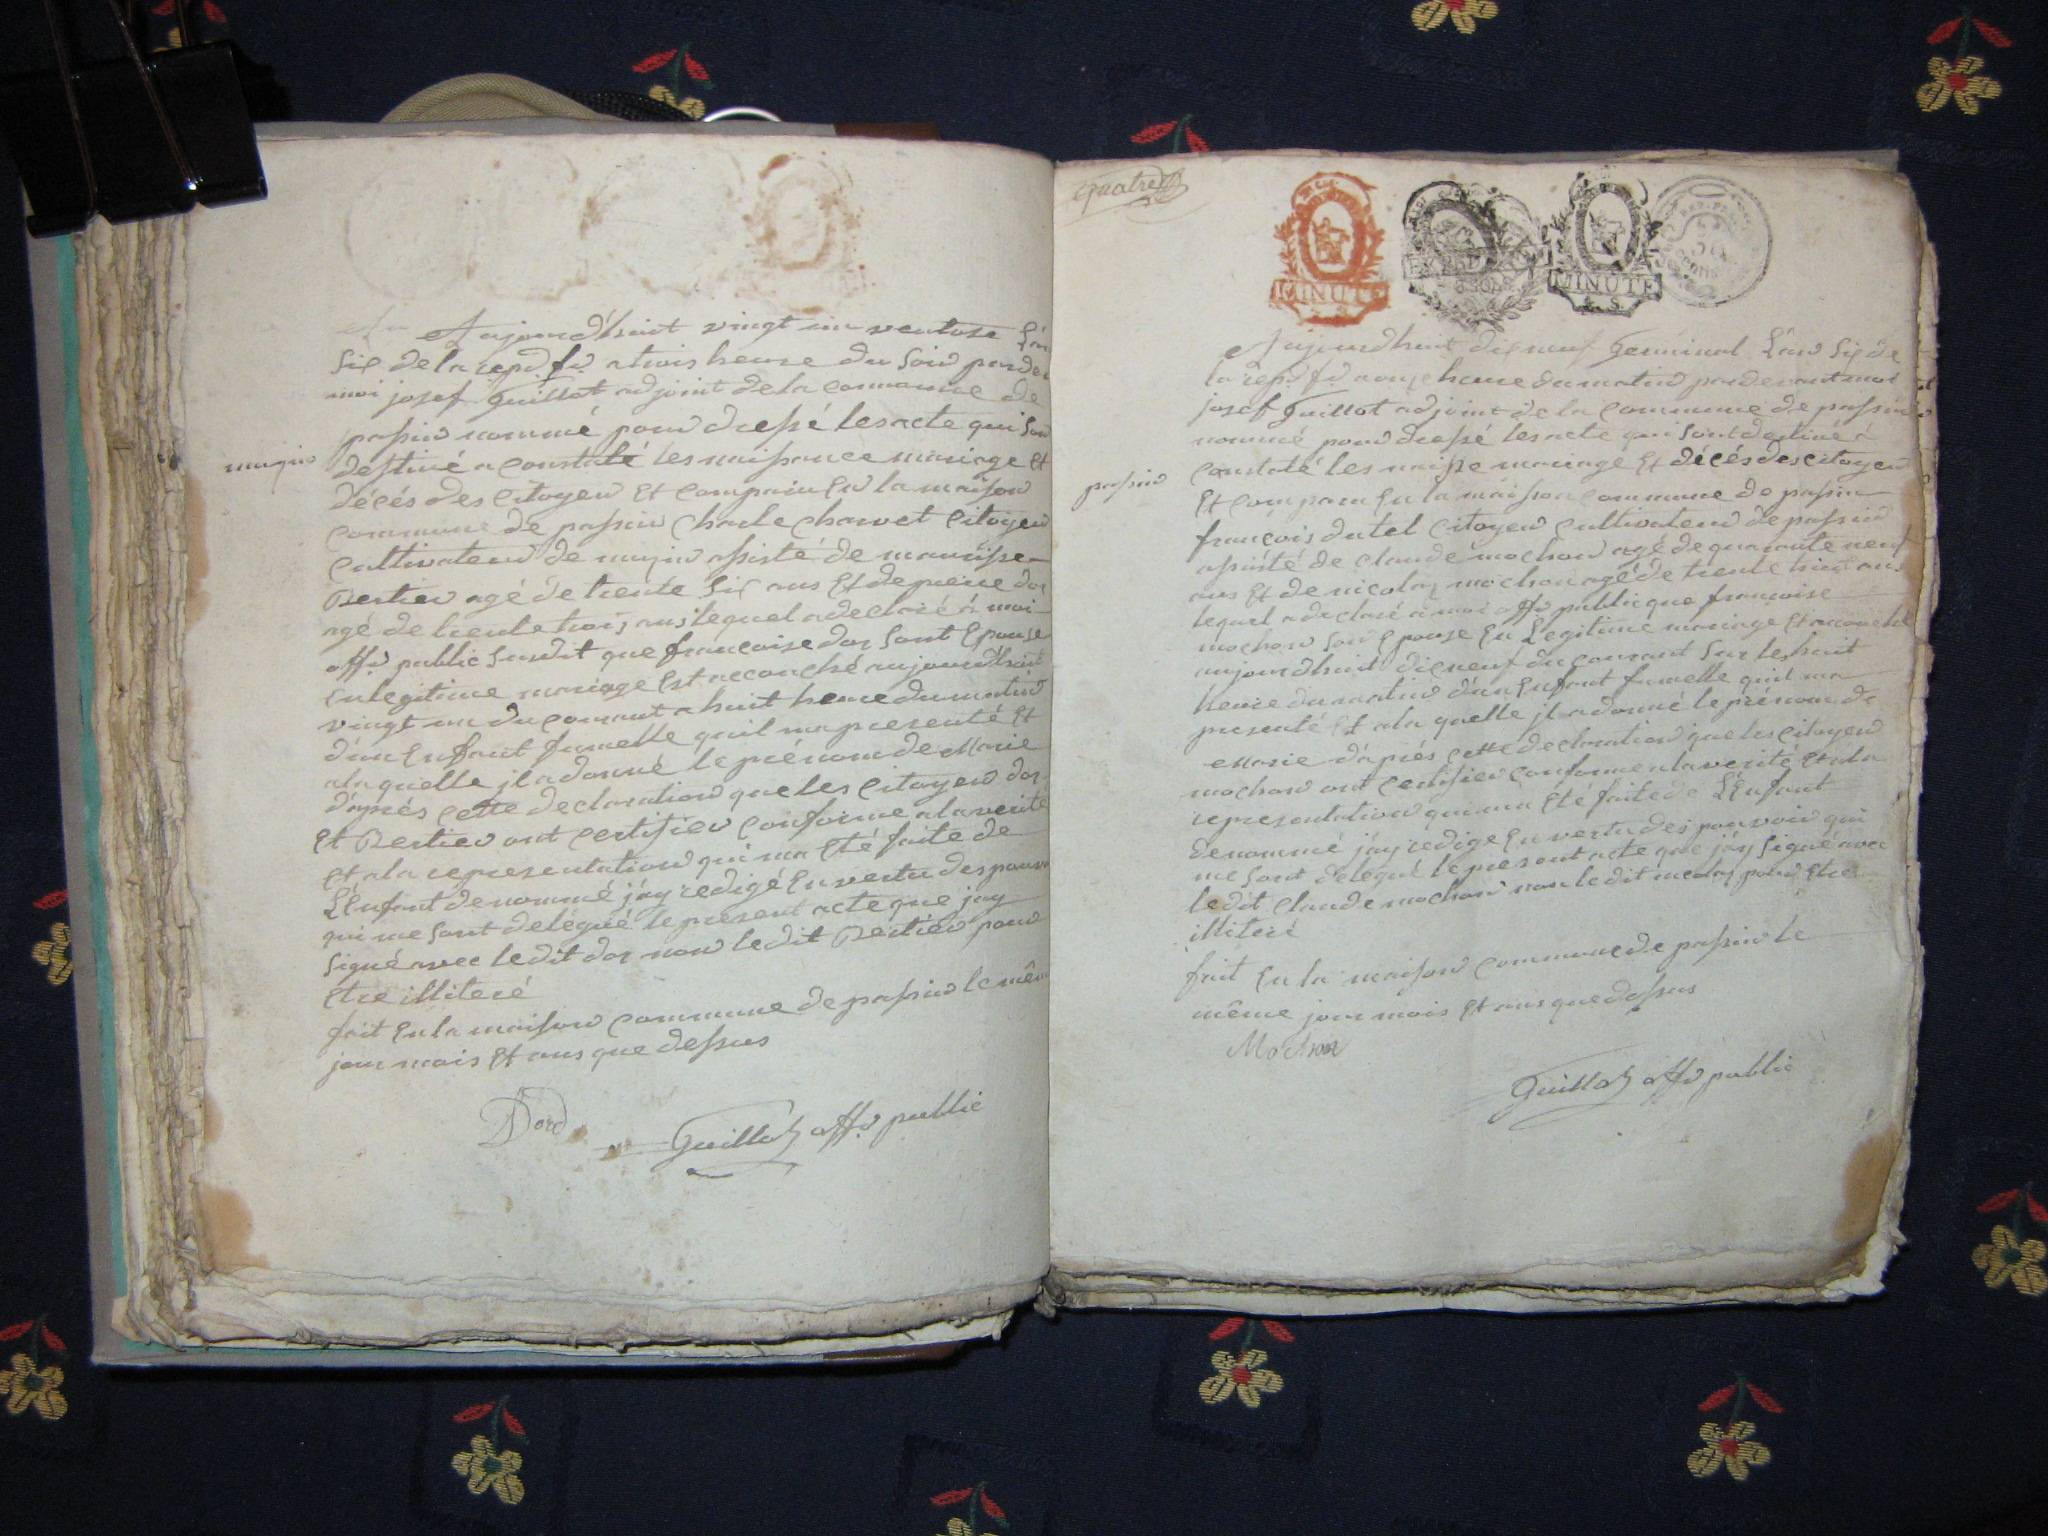 Aujourd'huit vingt un ventose L'an
Six de la repd fr a trois heure du Soir pardev
moi josef Guillot adjoint de la commune de
passin nommé pour dressé les acte qui Son
magin
destiné a constaté les naissance mariage et
décés des Citoyen Et comparu En la maison
commune de passin Charle Charvet Citoyen
Cultivateur de magin assisté de maurisse
Bertier agé de trente Six ans Et de pierre dor
agé de trente trois ans lequel a declaré à moi
offr public Susdit que francoise dor Sont Epouse
En legitime mariage Est accouché aujourd'huit
vingt un du courant a huit heure du matin
d'un Enfant fumelle quil ma presenté Et
a la quelle jl a donné le prénom de Marie
d'aprés cette declaration que les Citoyen dor
Et Bertier ont certifier conforme a la verité
Et a la representation qui ma Eté faite de
L'Enfant denommé j'ay redigé En vertu des pouvo
qui me Sont delégué le present acte que jay
Signé avec le dit dor non le dit Bertier pour
Etre illiteré
fait En la maison commune de passin le mêm
jour mois Et ans que dessus
Dord
Guillot offr public
quatre
MINUTE
MINUTE
Aujourdhuit dix neuf Germinal L'an Six de
la repd fr a onze heure du matin pardevant moi
josef Guillot adjoint de la Commune de passin
nommé pour dressé les acte qui Sont destiné à
passin
constaté les naisse mariagé Et décés des Citoyen
Et comparu En la maison commune de passin
françois dutel Citoyen Cultivateur de passin
assisté de Claude mochon agé de quarante neuf
ans Et de nicolas mochon agé de trente huit ans
lequel a declaré a moi offr public que francoise
mochon Son Epouse En Legitime mariage Et accouché
aujourdhuit dix neuf du courant Sur les huit
heure du matin d'un Enfant fumelle quil ma
presenté Et a la quelle jl a donné le prénom de
Marie d'aprés cette declaration que les Citoyen
mochon ont certifier conforme a la verité Et a la
representation qui ma Eté faite de L'Enfant
denommé j'ay redige En vertu des pouvoir qui
me Sont delégué le present acte que j'ay Signé avec
le dit Claude mochon non le dit nicolas pour Etre
illiteré
fait En la maison commune de passin le
même jour mois Et ans que dessus
Mochon
Guillot offr public